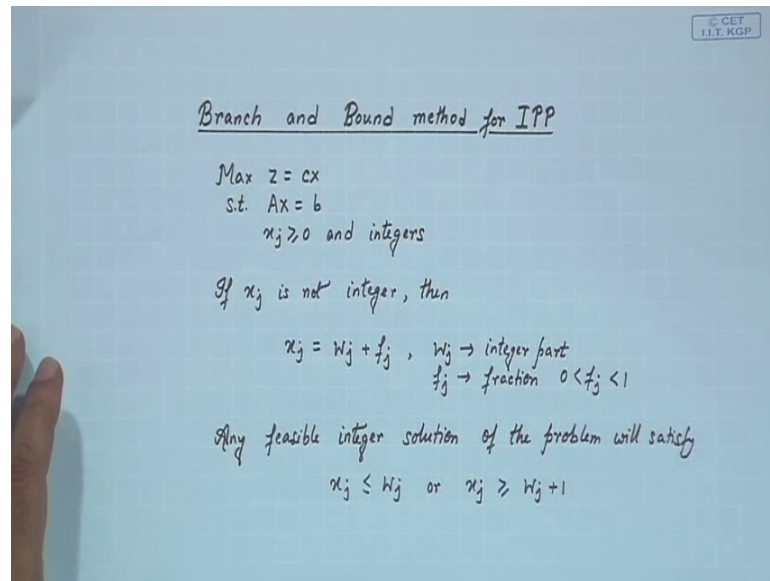 © CET
I.I.T. KGP
Branch and Bound method for IPP
Max z = cx
s.t. Ax = b
xj ≥ 0 and integers
If xj is not integer, then
xj = Wj + fj , Wj → integer part
fj → fraction 0 < fj < 1
Any feasible integer solution of the problem will satisfy
xj ≤ Wj or xj ≥ Wj + 1